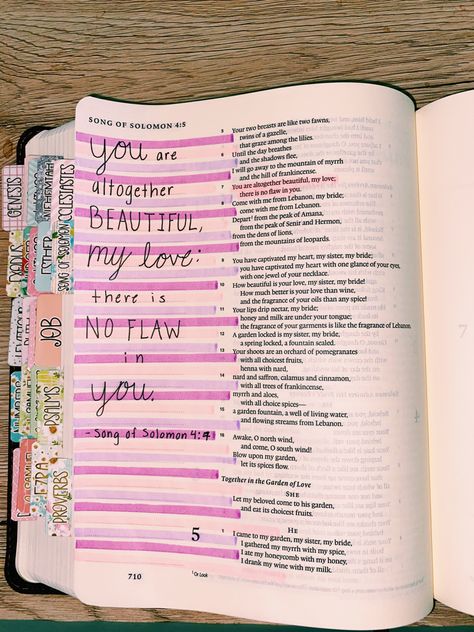 SONG OF SOLOMON 4:5
YOU are
altogether
BEAUTIFUL,
my love:
there is
NO FLAW
in
you.
- Song of Solomon 4:7
5 Your two breasts are like two fawns,
twins of a gazelle,
that graze among the lilies.
6 Until the day breathes
and the shadows flee,
I will go away to the mountain of myrrh
and the hill of frankincense.
7 You are altogether beautiful, my love;
there is no flaw in you.
8 Come with me from Lebanon, my bride;
come with me from Lebanon.
Depart¹ from the peak of Amana,
from the peak of Senir and Hermon,
from the dens of lions,
from the mountains of leopards.
9 You have captivated my heart, my sister, my bride;
you have captivated my heart with one glance of your eyes,
with one jewel of your necklace.
10 How beautiful is your love, my sister, my bride!
How much better is your love than wine,
and the fragrance of your oils than any spice!
11 Your lips drip nectar, my bride;
honey and milk are under your tongue;
the fragrance of your garments is like the fragrance of Lebanon.
12 A garden locked is my sister, my bride,
a spring locked, a fountain sealed.
13 Your shoots are an orchard of pomegranates
with all choicest fruits,
henna with nard,
14 nard and saffron, calamus and cinnamon,
with all trees of frankincense,
myrrh and aloes,
with all choice spices—
15 a garden fountain, a well of living water,
and flowing streams from Lebanon.
16 Awake, O north wind,
and come, O south wind!
Blow upon my garden,
let its spices flow.
Together in the Garden of Love
SHE
Let my beloved come to his garden,
and eat its choicest fruits.
HE
5 I came to my garden, my sister, my bride,
I gathered my myrrh with my spice,
I ate my honeycomb with my honey,
I drank my wine with my milk.
¹ Or Look
710
GENESIS
NEHEMIAH
ECCLESIASTES
SONG OF SOLOMON
ESTHER
JOB
PSALMS
EZRA
PROVERBS
7
4